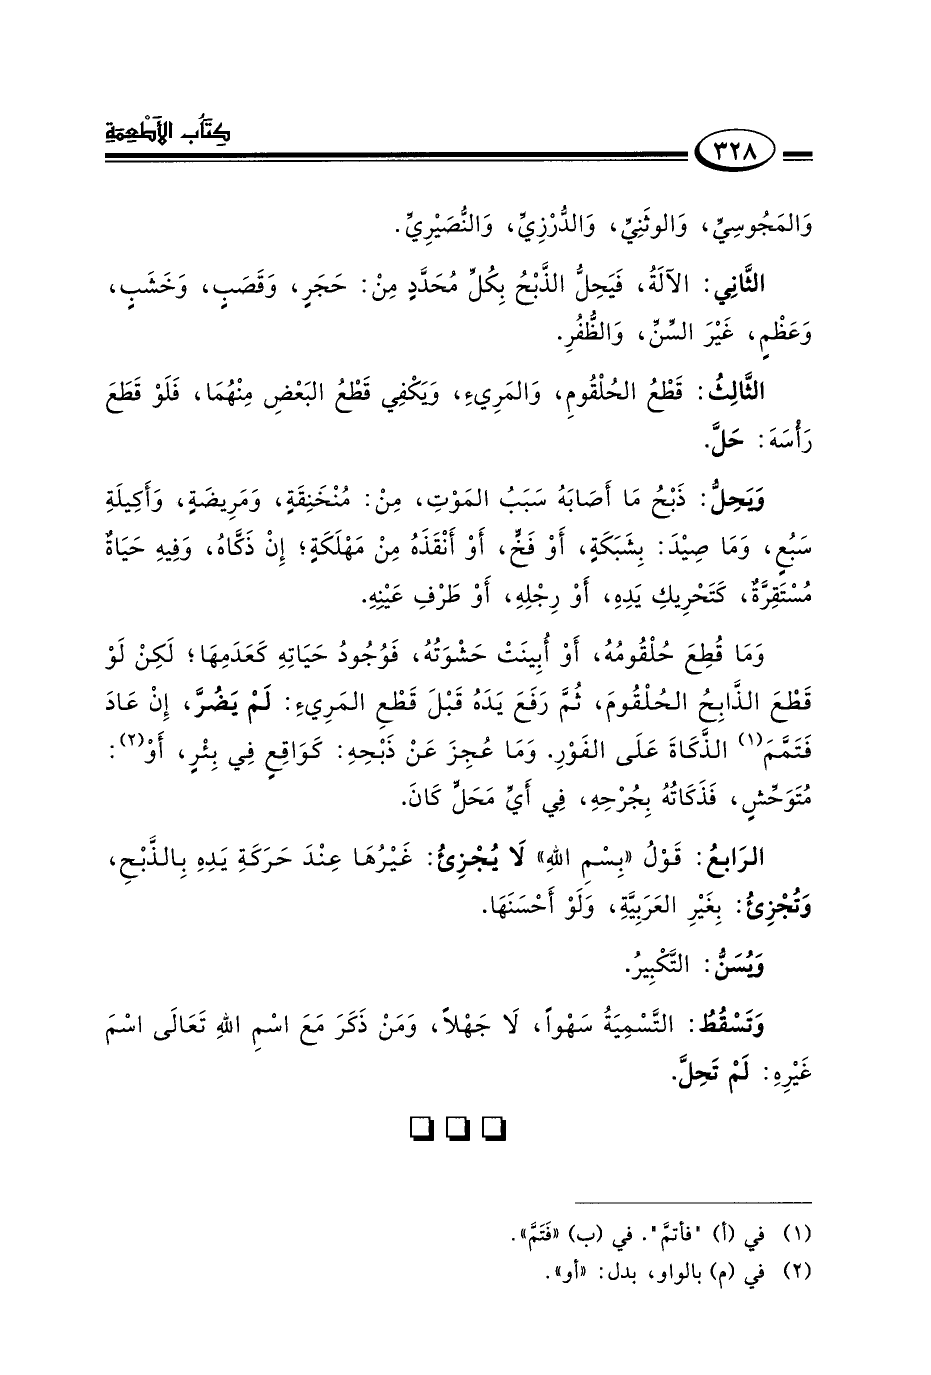 كِتَابُ الأَطْعِمَةِ
٣٢٨
وَالمَجُوسِيِّ، وَالوثَنِيِّ، وَالدُّرْزِيِّ، وَالنُّصَيْرِيِّ.
الثَّانِي: الآلَةُ، فَيَحِلُّ الذَّبْحُ بِكُلِّ مُحَدَّدٍ مِنْ: حَجَرٍ، وَقَصَبٍ، وَخَشَبٍ،
وَعَظْمٍ، غَيْرَ السِّنِّ، وَالظُّفُرِ.
الثَّالِثُ: قَطْعُ الحُلْقُومِ، وَالمَرِيءِ، وَيَكْفِي قَطْعُ البَعْضِ مِنْهُمَا، فَلَوْ قَطَعَ
رَأْسَهَ: حَلَّ.
وَيَحِلُّ: ذَبْحُ مَا أَصَابَهُ سَبَبُ المَوْتِ، مِنْ: مُنْخَنِقَةٍ، وَمَرِيضَةٍ، وَأَكِيلَةِ
سَبُعٍ، وَمَا صِيْدَ: بِشَبَكَةٍ، أَوْ فَخٍّ، أَوْ أَنْقَذَهُ مِنْ مَهْلَكَةٍ؛ إِنْ ذَكَّاهُ، وَفِيهِ حَيَاةٌ
مُسْتَقِرَّةٌ، كَتَحْرِيكِ يَدِهِ، أَوْ رِجْلِهِ، أَوْ طَرْفِ عَيْنِهِ.
وَمَا قُطِعَ حُلْقُومُهُ، أَوْ أُبِينَتْ حَشْوَتُهُ، فَوُجُودُ حَيَاتِهِ كَعَدَمِهَا؛ لَكِنْ لَوْ
قَطْعَ الذَّابِحُ الحُلْقُومَ، ثُمَّ رَفَعَ يَدَهُ قَبْلَ قَطْعِ المَرِيءِ: لَمْ يَضُرَّ، إِنْ عَادَ
فَتَمَّمَ(١) الذَّكَاةَ عَلَى الفَوْرِ. وَمَا عُجِزَ عَنْ ذَبْحِهِ: كَوَاقِعٍ فِي بِئْرٍ، أَوْ(٢):
مُتَوَحِّشٍ، فَذَكَاتُهُ بِجُرْحِهِ، فِي أَيِّ مَحَلٍّ كَانَ.
الرَابعُ: قَوْلُ «بِسْمِ اللهِ» لَا يُجْزِئُ: غَيْرُهَا عِنْدَ حَرَكَةِ يَدِهِ بِالذَّبْحِ،
وَتُجْزِئُ: بِغَيْرِ العَرَبِيَّةِ، وَلَوْ أَحْسَنَهَا.
وَيُسَنُّ: التَّكْبِيرُ.
وَتَسْقُطُ: التَّسْمِيَةُ سَهْواً، لَا جَهْلاً، وَمَنْ ذَكَرَ مَعَ اسْمِ اللهِ تَعَالَى اسْمَ
غَيْرِهِ: لَمْ تَحِلَّ.
(١) في (أ) "فأتمَّ". في (ب) «فَتَمَّ».
(٢) في (م) بالواو، بدل: «أو».